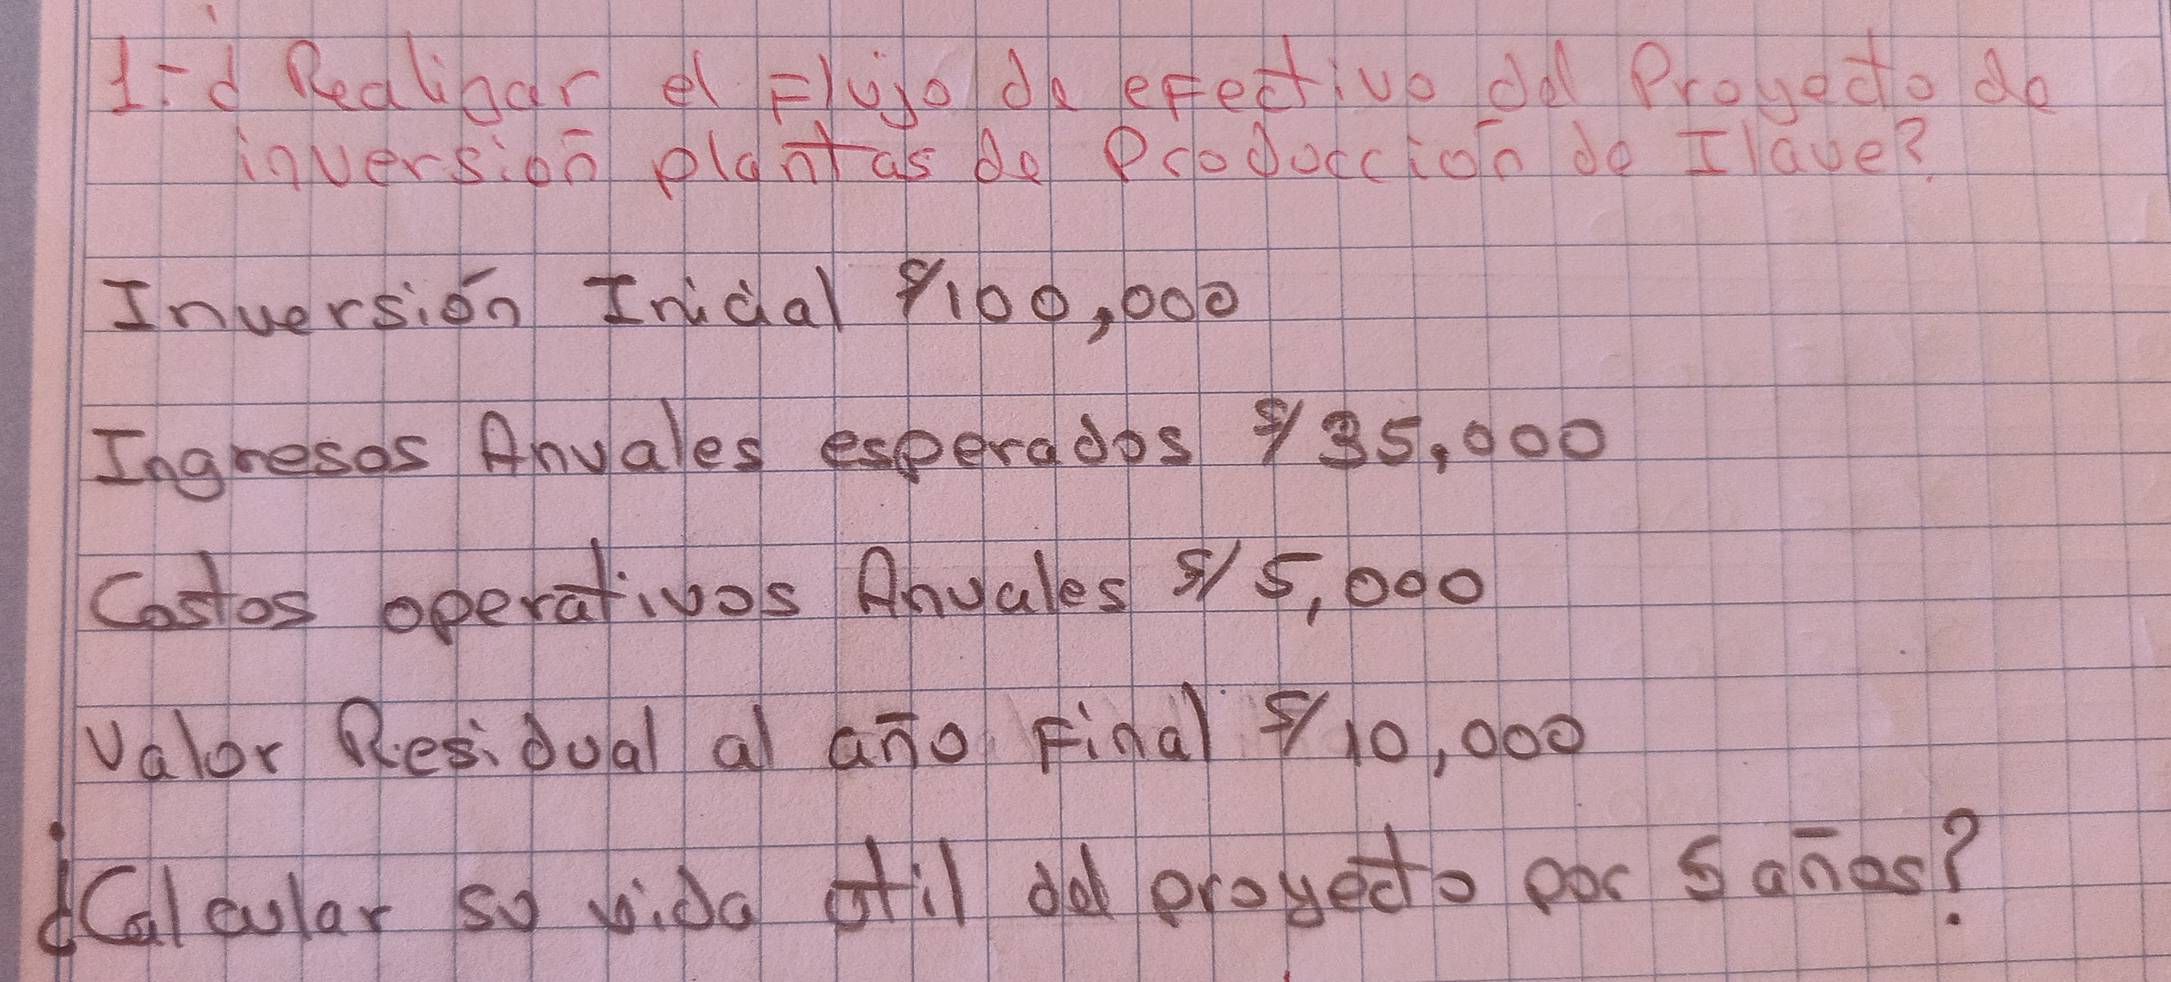 1.- ¿ Realizar el Flujo de efectivo del Proyecto de
inversión plantas de Producción de Ilave?
Inversión Inicial S/100,000
Ingresos Anuales esperados S/ 35,000
Costos operativos Anuales S/ 5,000
Valor Residual al año Final S/ 10,000
¿Calcular su vida útil del proyecto por 5 años?